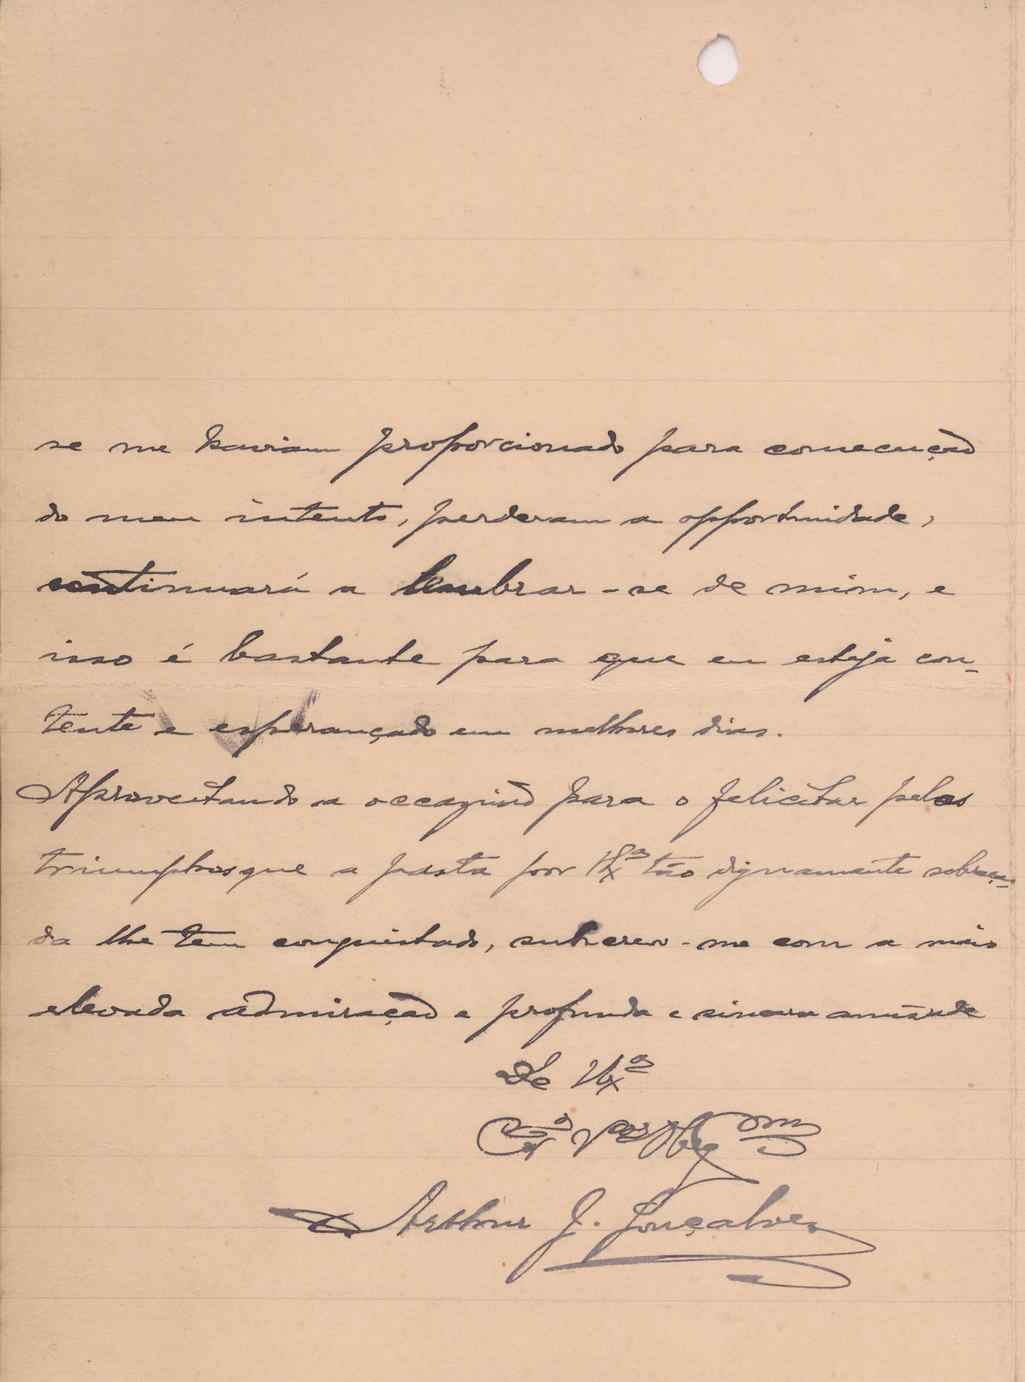 se me haviam proporcionado para consecução
do meu intento, perderam a opportunidade,
continuará a lembrar-se de mim, e
isso é bastante para que eu esteja con-
tente e esperançado em melhores dias.
Aproveitando a occazião para o felicitar pelos
triumphos que a pasta por V Exª tão dignamente sobraça-
da lhe tem conquistado, subscrevo-me com a mais
elevada admiração e profunda e sincera amizade
De V Exª
Obg
Arthur J. Gonçalves